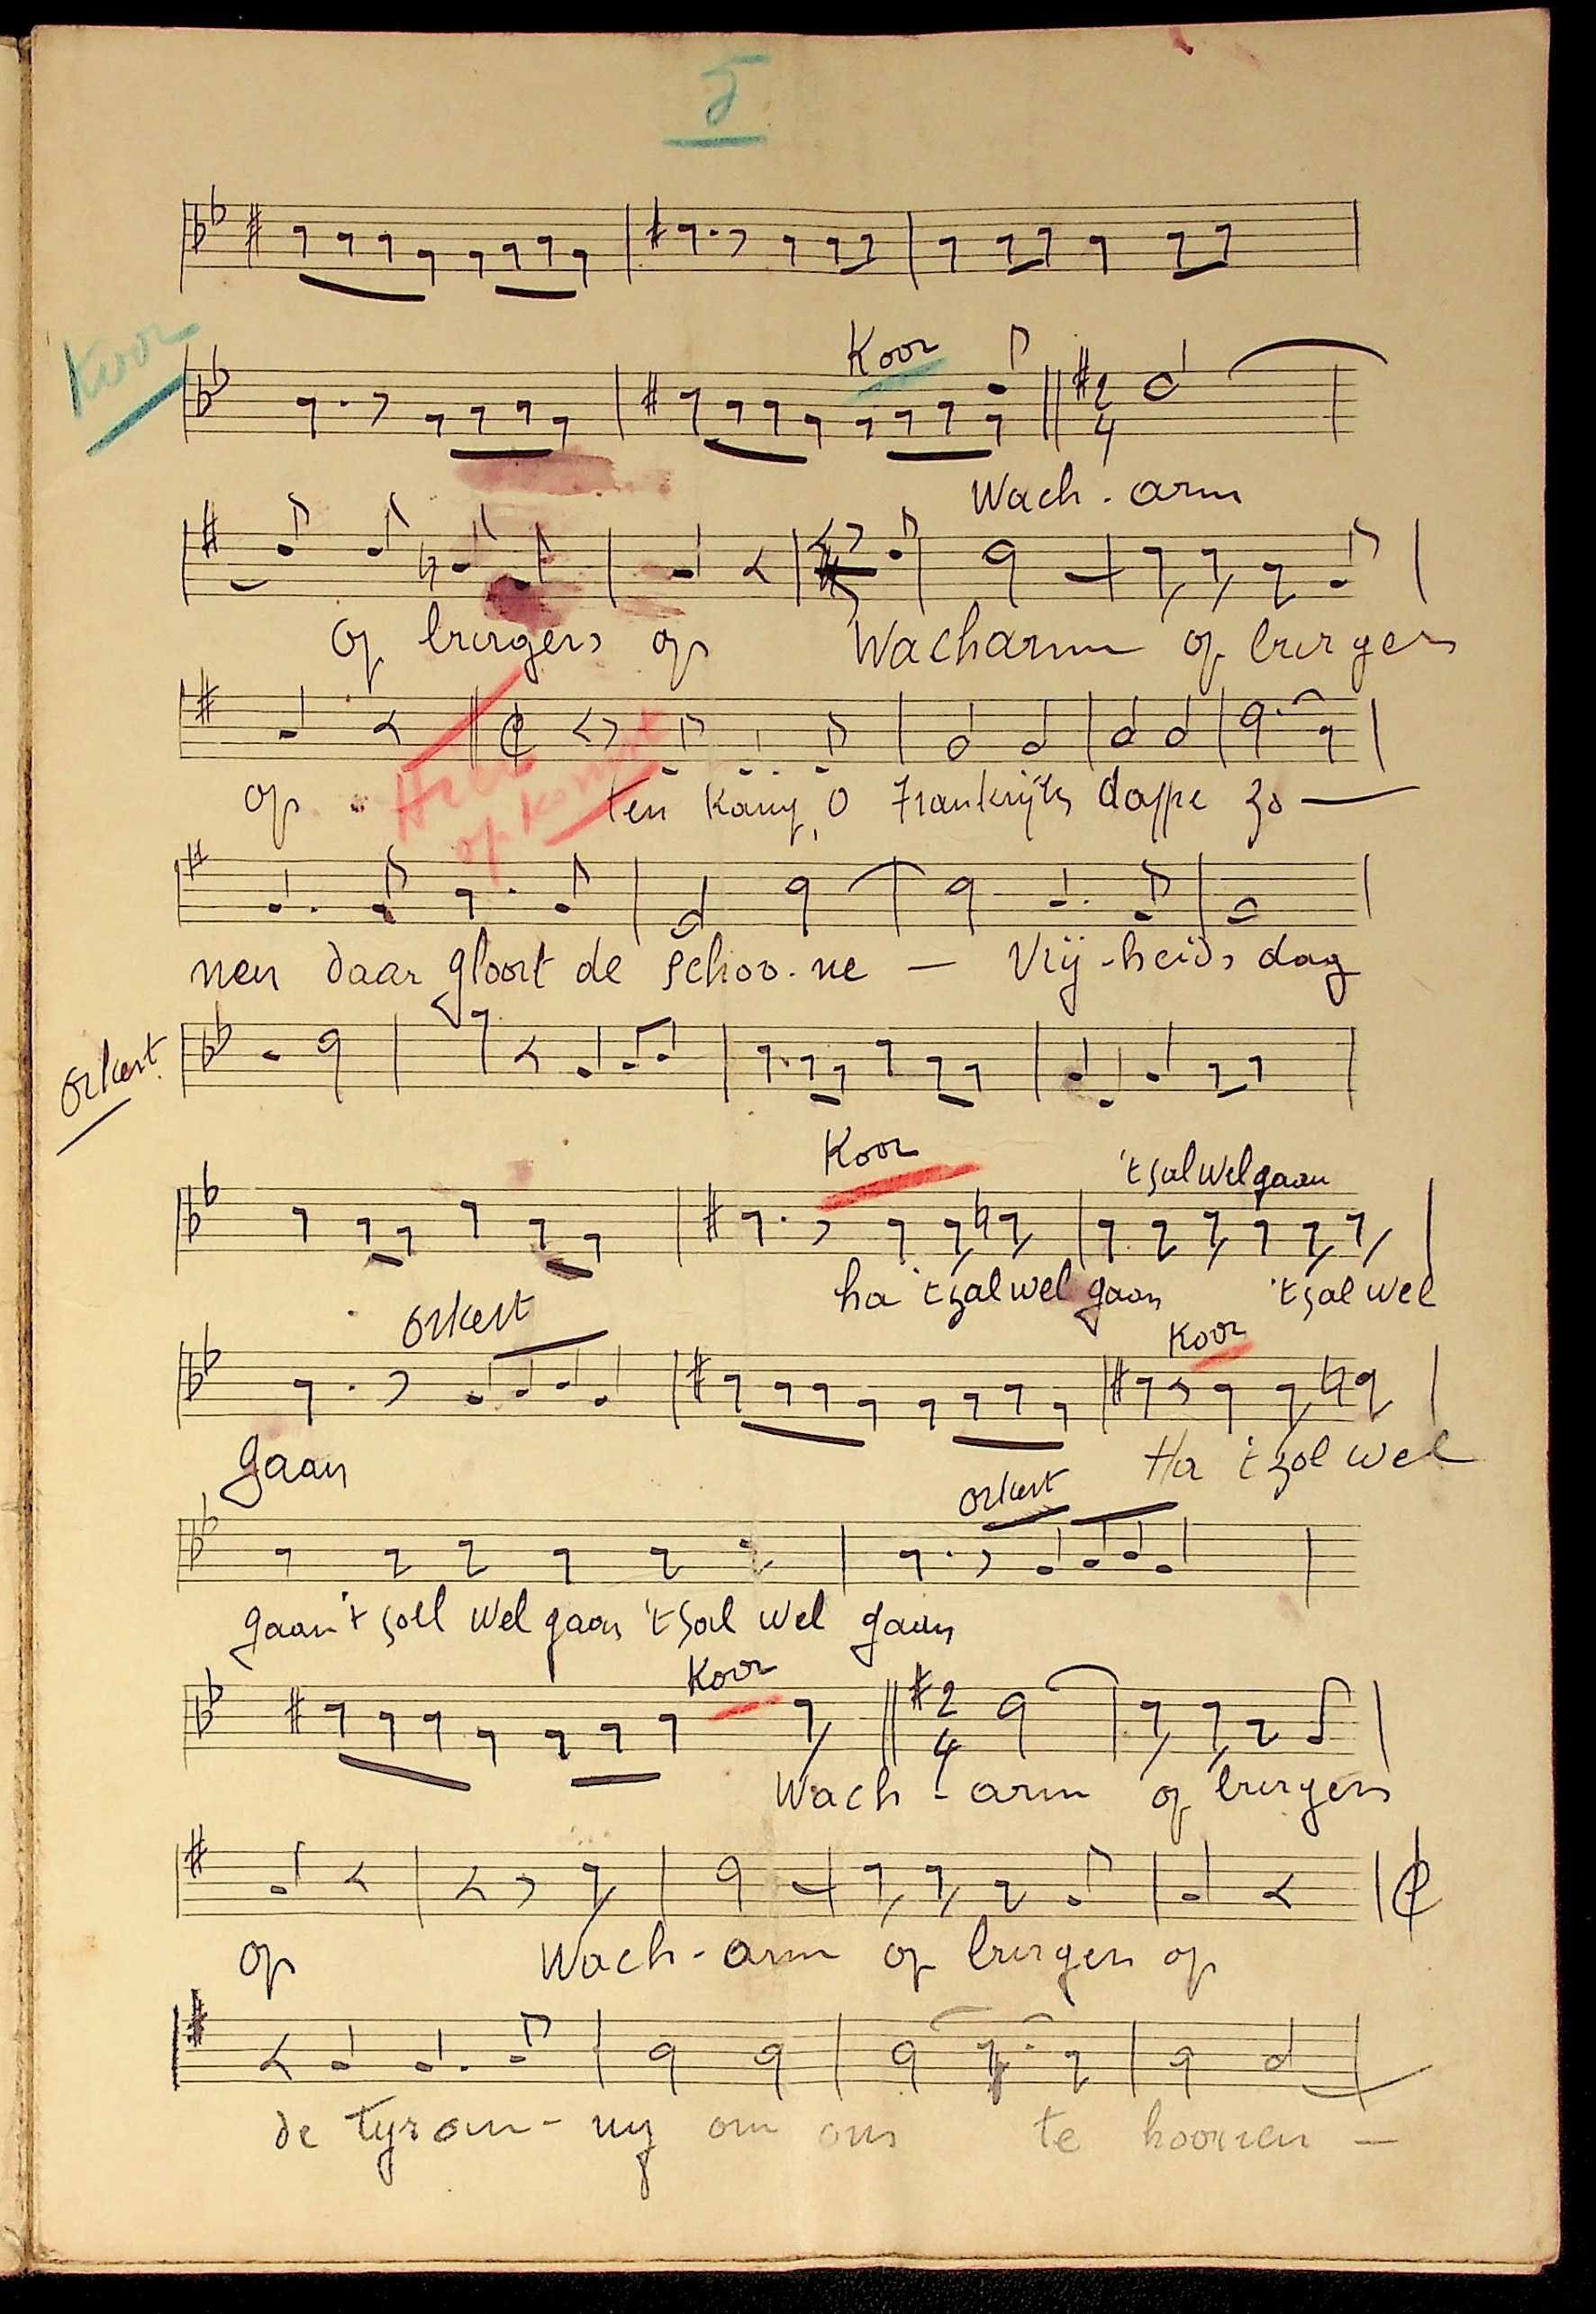 5
Koor
Koor
2
4
Wach - arm
op burgers op Wacharm op burgers
op. ten kamp, o Frankrijks dappe zo —
opkomst
nen daar gloort de schoo - ne — Vrij - heids dag
Orkest
Koor
't zal wel gaan
ha 't zal wel gaan 't zal wel
Orkest
Koor
gaan Ha 't zal wel
Orkest
gaan 't zal wel gaan 't zal wel gaan
Koor
2
4
Wach - arm op burgers
op Wach - arm op burgers op
de tyran - ny om ons te hoonen —